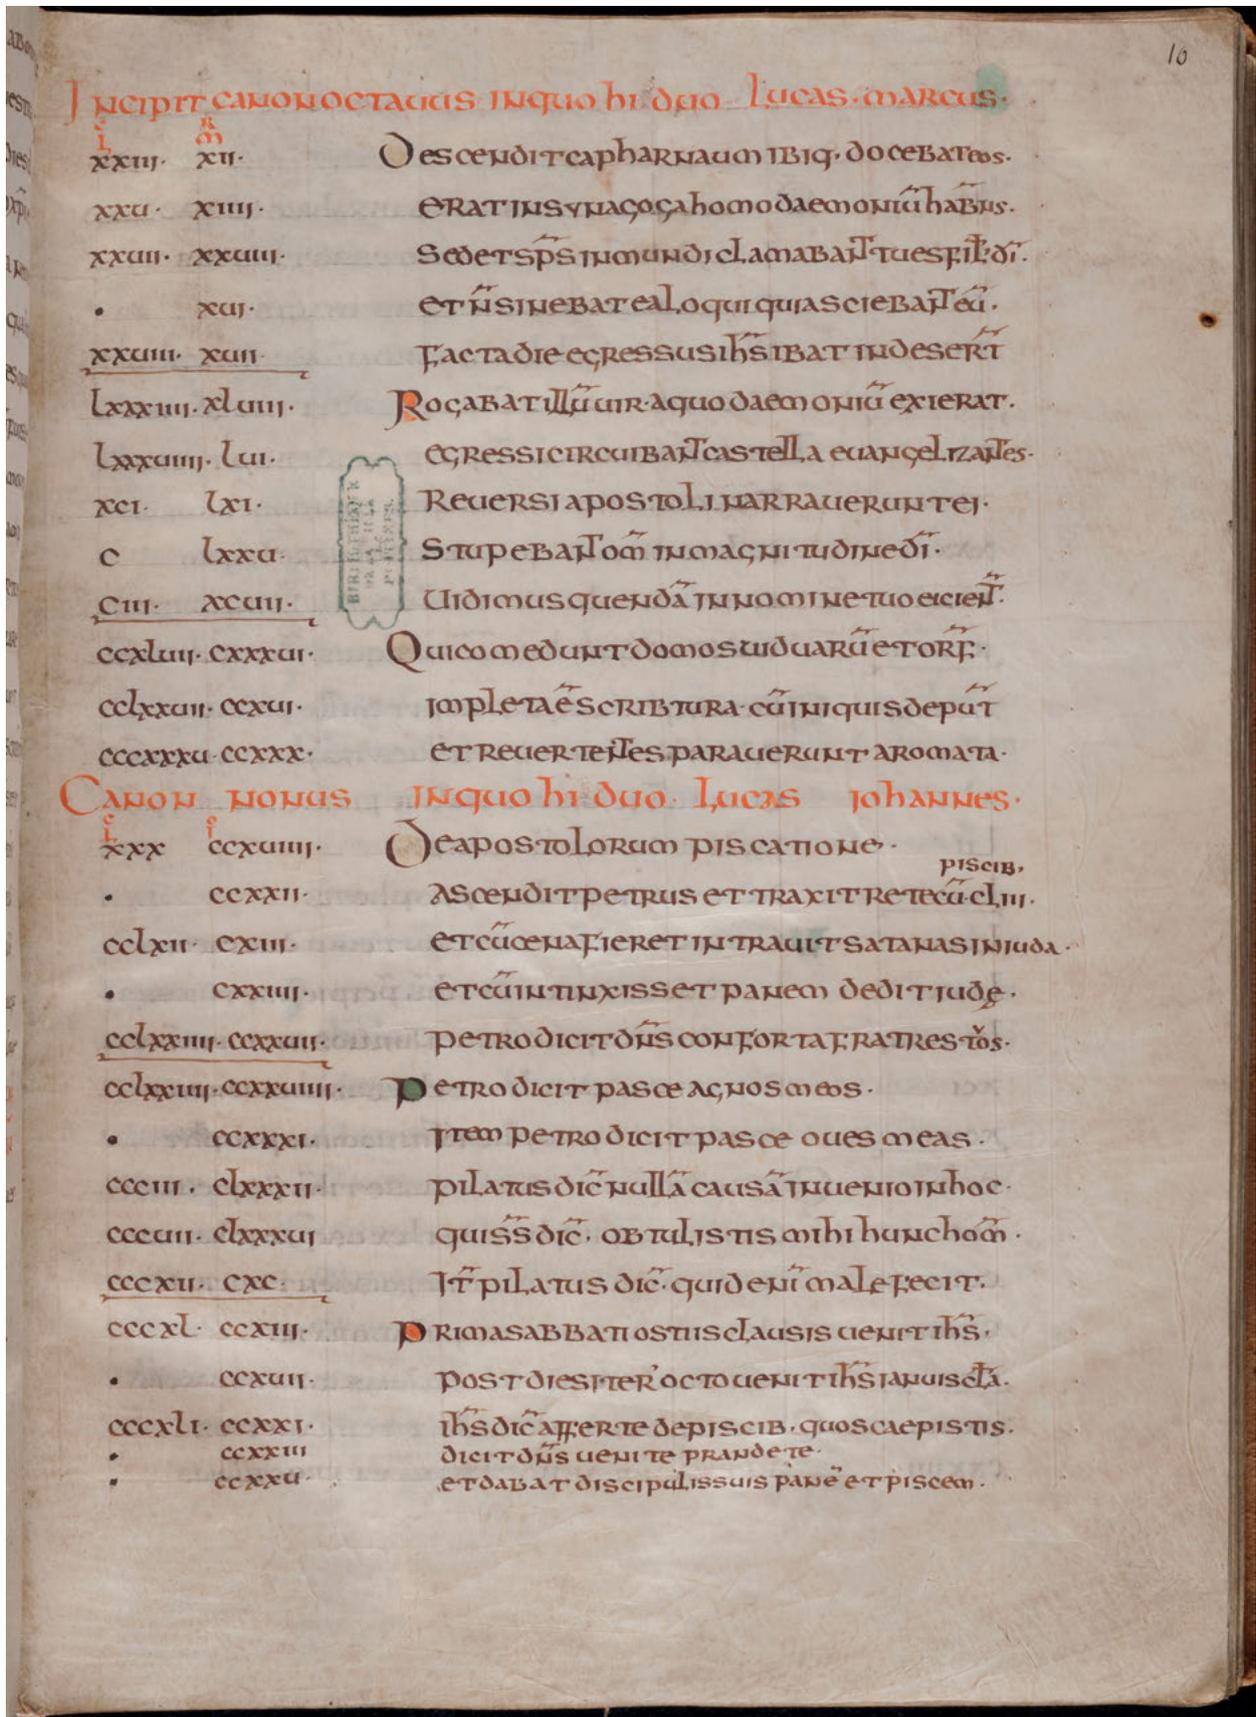 10
Incipit canon octauus in quo hi duo Lucas · marcus ·
L̊ m̊
xxiii · xii · Descendit capharnaum ibiq · docebat eos ·
xxu · xiiii · erat in synagoga homo daemoniū habn̄s ·
xxuii · xxuiii · Sed et sp̄s inmundi clamaban̄t tu es fil di ·
· xui · et n̄ sinebat ea loqui quia sciebant eū ·
xxuiii · xuii · Facta die egressus ih̄s ibat in desert̄
lxxxiiii · xluiii · Rogabat illū uir · a quo daemoniū exierat ·
lxxxuiiii · lui · egressi circuibant castella euangelizantes ·
xci · lxi · Reuersi apostoli narrauerunt ei ·
c lxxu · Stupebant om̄ in magnitudine dī ·
ciii · xcuii · Uidimus quendā in nomine tuo eicient̄ ·
ccxluii · cxxxui · Qui comedunt domos uiduarū et orf̄ ·
cclxxuii · ccxui · impleta ē scribtura · cū iniquis deput̄
cccxxxu · ccxxx · et reuertentes parauerunt aromata ·
Canon nonus in quo hi duo · Lucas iohannes ·
xxx ccxuiiii · De apostolorum piscatione ·
piscib ·
· ccxxii · ascendit petrus et traxit rete cū · cliii ·
cclxii · cxiii · et cū cena fieret intrauit satanas in iuda ·
· cxxiiii · et cū intinxisset panem dedit iudę ·
cclxxiiii · ccxxuii · petro dicit dn̄s conforta fratres tos ·
cclxxiiii · ccxxuiiii · Petro dicit pasce agnos meos ·
· ccxxxi · item petro dicit pasce oues meas ·
ccciii · clxxxii · pilatus dic̄ nullā causā inuenio in hoc ·
cccuii · clxxxui quis s̄ dic̄ · obtulistis mihi hunc hom̄ ·
cccxii · cxc · It̄ pilatus dic̄ · quid enī male fecit ·
cccxl · ccxiii · Prima sabbati ostiis clausis uenit ih̄s ·
· ccxuii · post dies iter octo uenit ih̄s ianuis cla ·
cccxli · ccxxi · ih̄s dic̄ afferte de piscib · quos caepistis ·
· ccxxiii dicit dn̄s uenite prandete ·
· ccxxu · et dabat discipulis suis panē et piscem ·